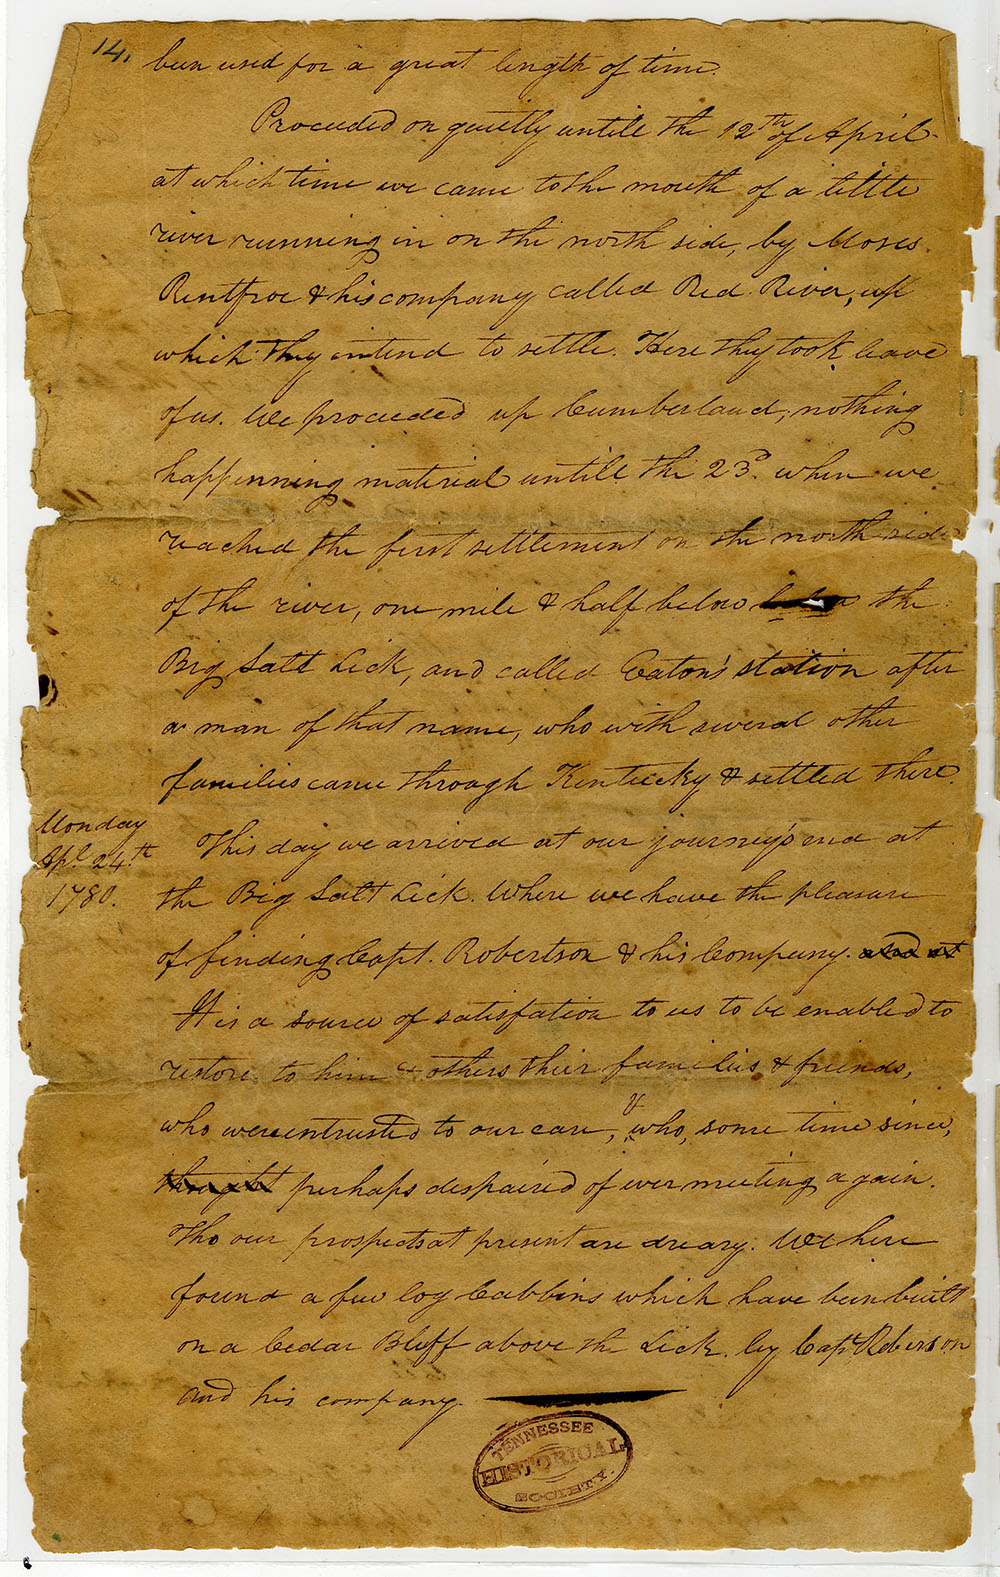 14.
been used for a great length of time.
Proceeded on quietly untill the 12th of April
at which time we came to the mouth of a little
river running in on the north side, by Moses
Rentfroe & his company called Red River, up
which they intend to settle. Here they took leave
of us. We proceeded up Cumberland, nothing
happenning material untill the 23d. when we
reached the first settlement on the north side
of the river, one mile & half below the
Big Salt Lick, and called Eaton's station after
a man of that name, who with several other
families came through Kentucky & settled there.
Monday
Apl. 24th
1780.
This day we arrived at our journey's end at
the Big Salt Lick. Where we have the pleasure
of finding Capt. Robertson & his Company. and at
It is a source of satisfation to us to be enabled to
restore to him & others their families & friends,
who were entrusted to our care, & who, some time since,
thought perhaps despaired of ever meeting again.
Tho our prospects at present are dreary. We have
found a few log Cabbins which have been built
on a Cedar Bluff above the Lick by Capt Roberson
and his company.
TENNESSEE
HISTORICAL
SOCIETY.